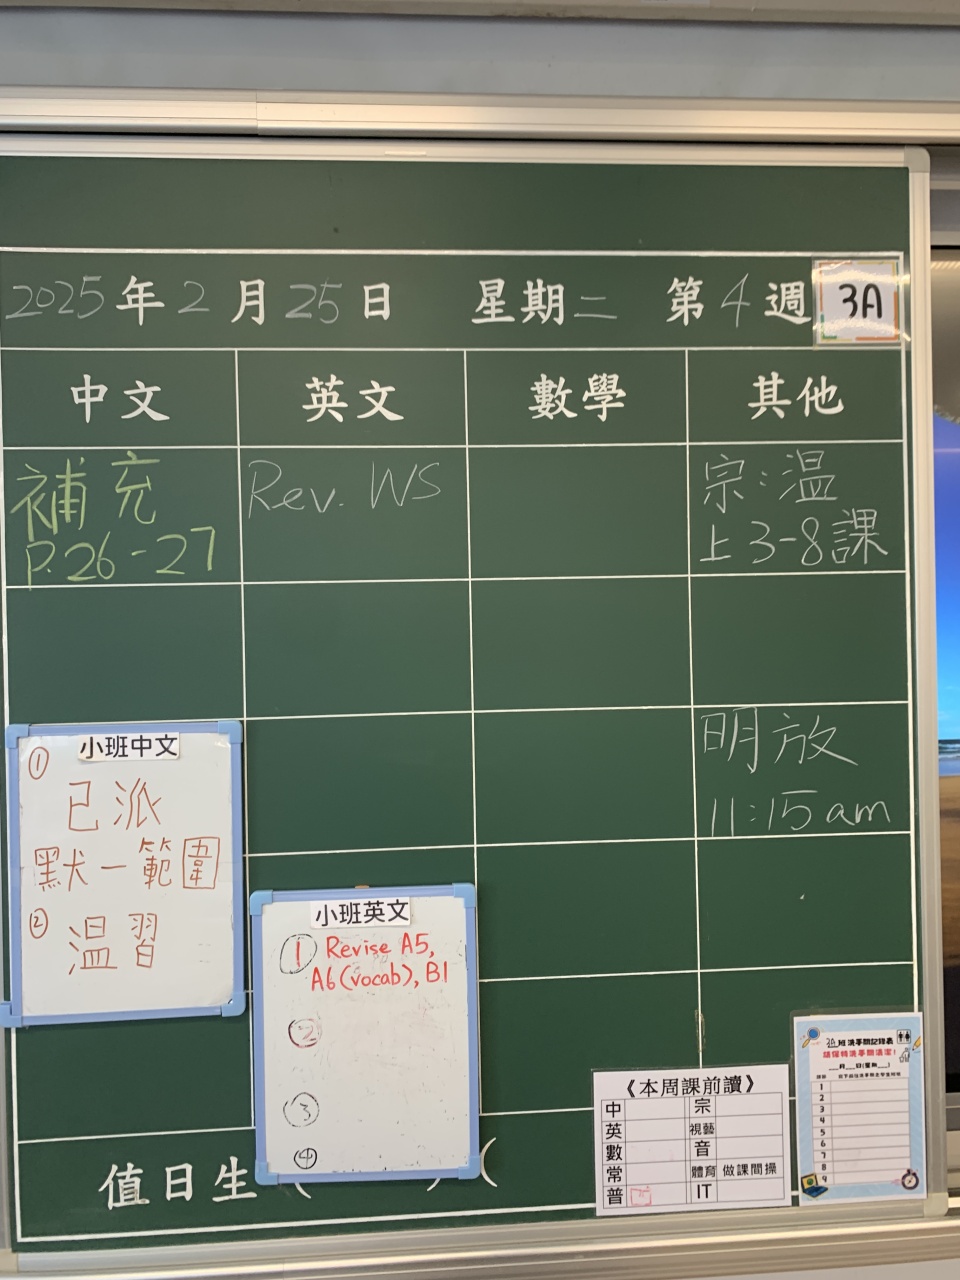 2025年2月25日 星期二 第4週 3A
中文 英文 數學 其他
補充
P.26-27
Rev. WS
宗：温
上3-8課
明放
11:15am
小班中文
① 已派
默一範圍
② 温習
小班英文
① Revise A5,
A6(vocab), B1
②
③
④
值日生 ( ) (
《本周課前讀》
中 宗
英 視藝
數 音
常 體育 做課間操
普 IT
3A班洗手間記錄表
請保持洗手間清潔！
__月__日(星期__)
1
2
3
4
5
6
7
8
9